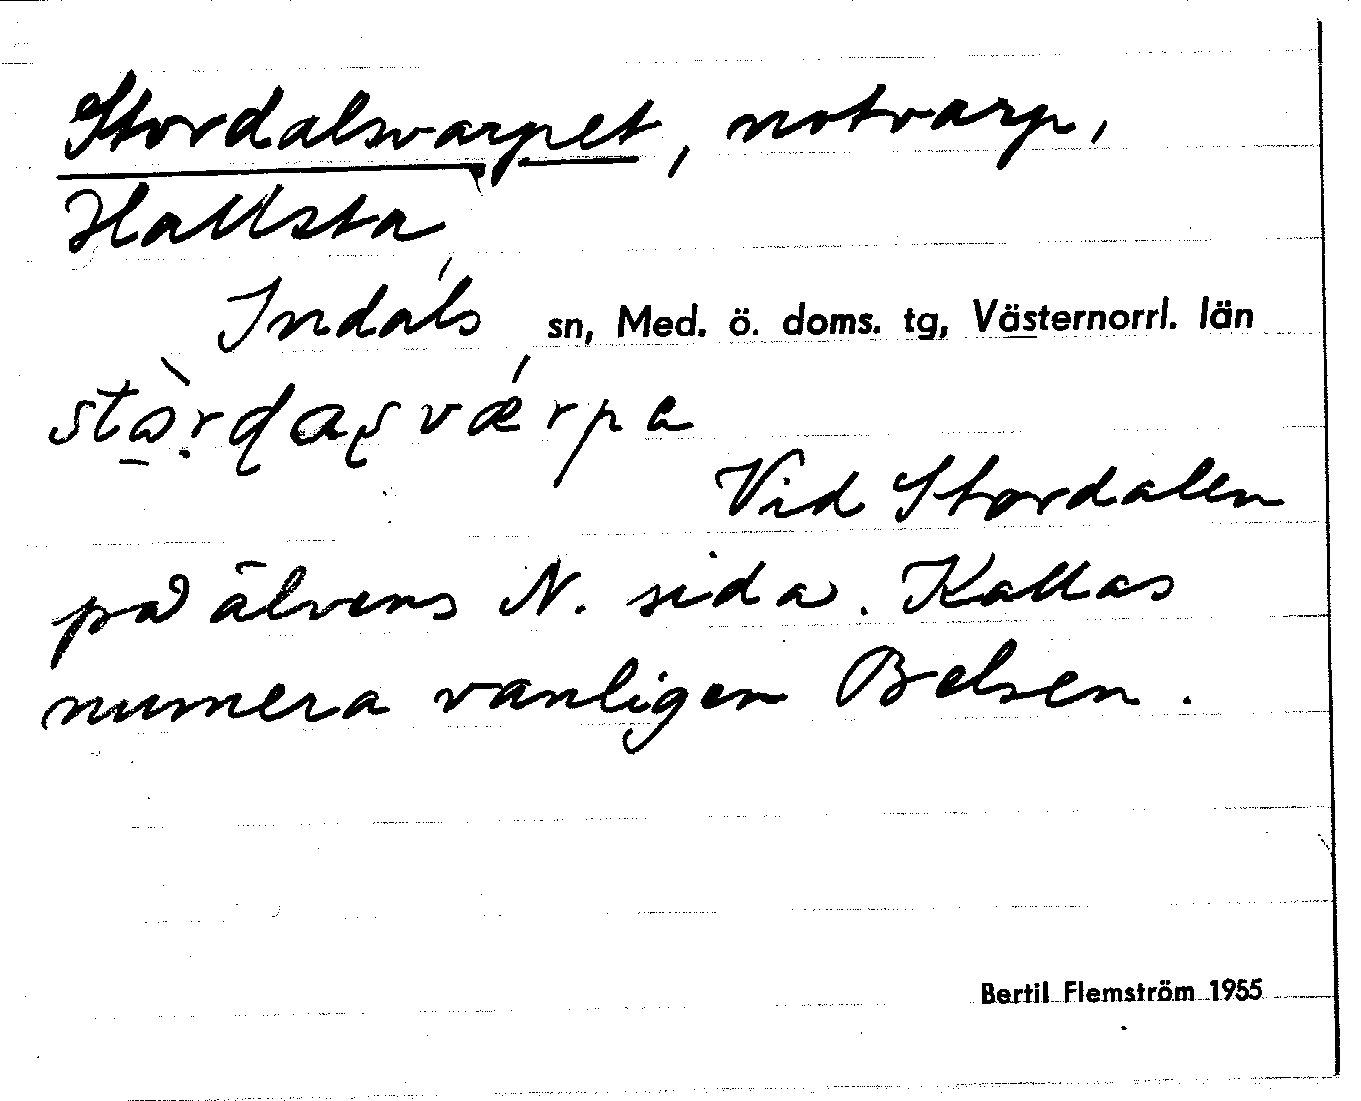 Stordalsvarpet, notvarp,
Hallsta
Indals sn, Med. ö. doms. tg, Västernorrl. län
Vid Stordalen
på älvens N. sida. Kallas
numera vanligen Belsen.
Bertil Flemström 1955